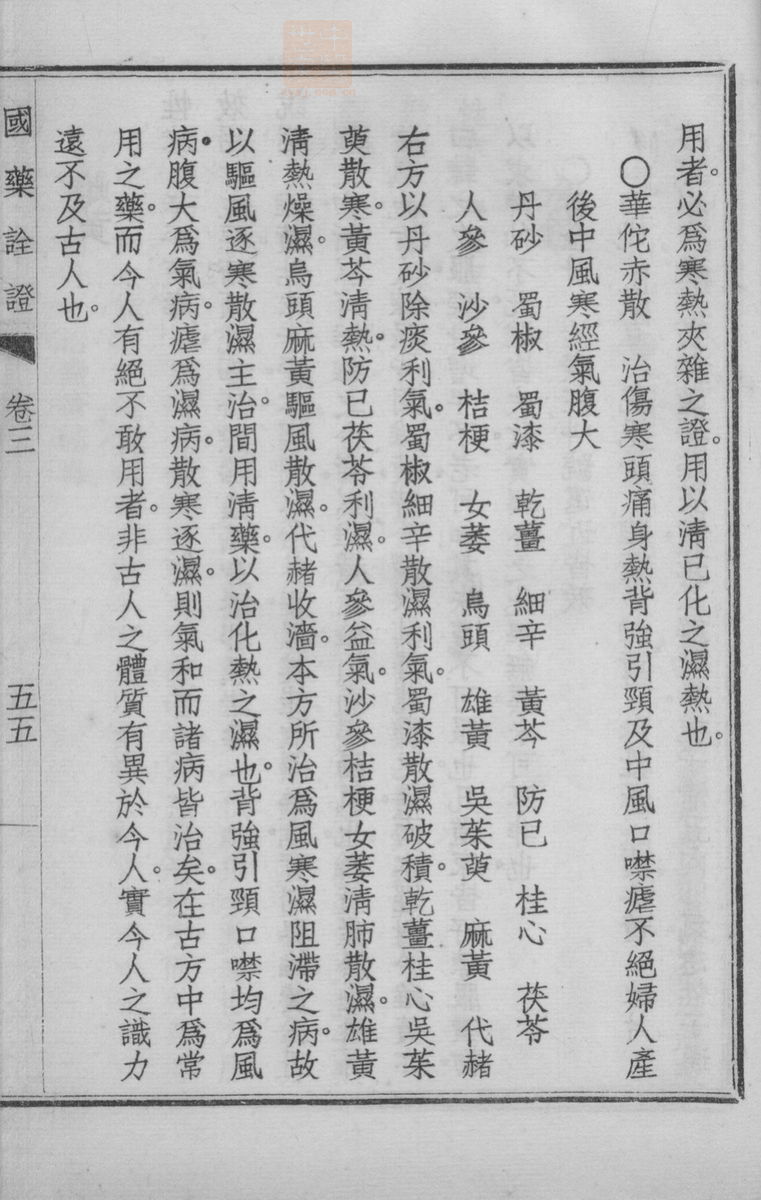 用者。必爲寒熱夾雜之證。用以淸已化之濕熱也。
〇華佗赤散　治傷寒頭痛身熱背強引頸及中風口噤瘧不絕婦人產
後中風寒經氣腹大
丹砂　蜀椒　蜀漆　乾薑　細辛　黃芩　防已　桂心　茯苓
人參　沙參　桔梗　女萎　烏頭　雄黃　吳茱萸　麻黃　代赭
右方以丹砂除痰利氣。蜀椒細辛散濕利氣。蜀漆散濕破積。乾薑桂心吳茱
萸散寒。黃芩淸熱。防已茯苓利濕。人參益氣。沙參桔梗女萎淸肺散濕。雄黃
淸熱燥濕。烏頭麻黃驅風散濕。代赭收濇。本方所治爲風寒濕阻滯之病。故
以驅風逐寒散濕主治。間用淸藥。以治化熱之濕也。背強引頸口噤均爲風
病。腹大爲氣病。瘧爲濕病。散寒逐濕。則氣和而諸病皆治矣。在古方中爲常
用之藥。而今人有絕不敢用者。非古人之體質有異於今人。實今人之識力
遠不及古人也。
國藥詮證　卷三　五五